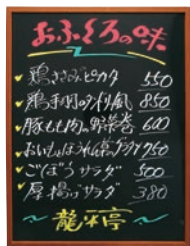 おふくろの味
鶏ささみピカタ 550
鶏手羽の 風 850
豚もも肉の野菜巻 600
おいもとほうれん草のグラタン 750
ごぼうサラダ 500
厚揚げサラダ 380
龍米亭